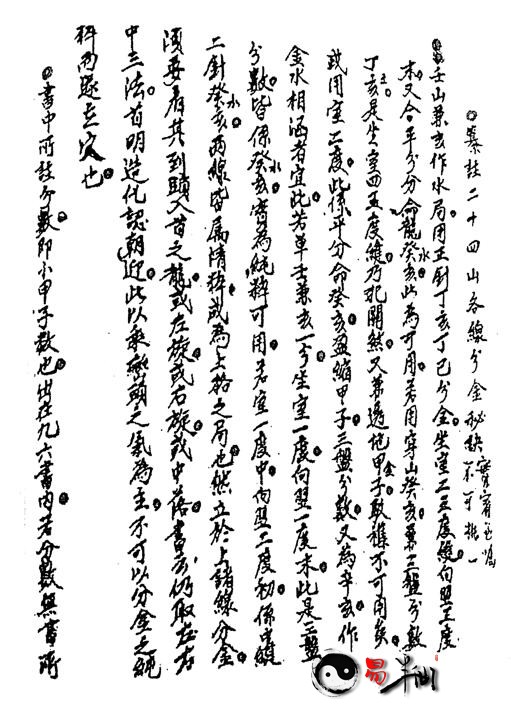 纂註二十四山各線分金秘訣 實實在此不可輕口
壬山兼亥作水局用正針丁亥丁巳分金坐室二三度縫向翌王度
木又合平分命龍癸亥水此為可用若用穿山癸亥兼三盤分數
丁亥土是坐室四五度縫乃犯關煞又兼透地甲子金取雜不可用矣
或用室二度此係平分命癸亥盈縮甲子三盤分數又為辛亥作
金水相涵者宜此若單壬兼亥一分坐室一度向翌一度末此是三盤
分數皆係癸亥水實為純粹可用若室一度中向翌二度初係中縫
二針癸亥水兩線皆屬清粹或為上格之局也然立於上諸線分金
須要看其到頭入首之龍或左旋或右旋或中落書云仍取在右
中三法首明造化認朝迎此以乘巒頭之氣為主不可以分金之純
粹而遂立穴也
書中所註分數即小甲子數也出在九六書內若分數無書所
易半仙